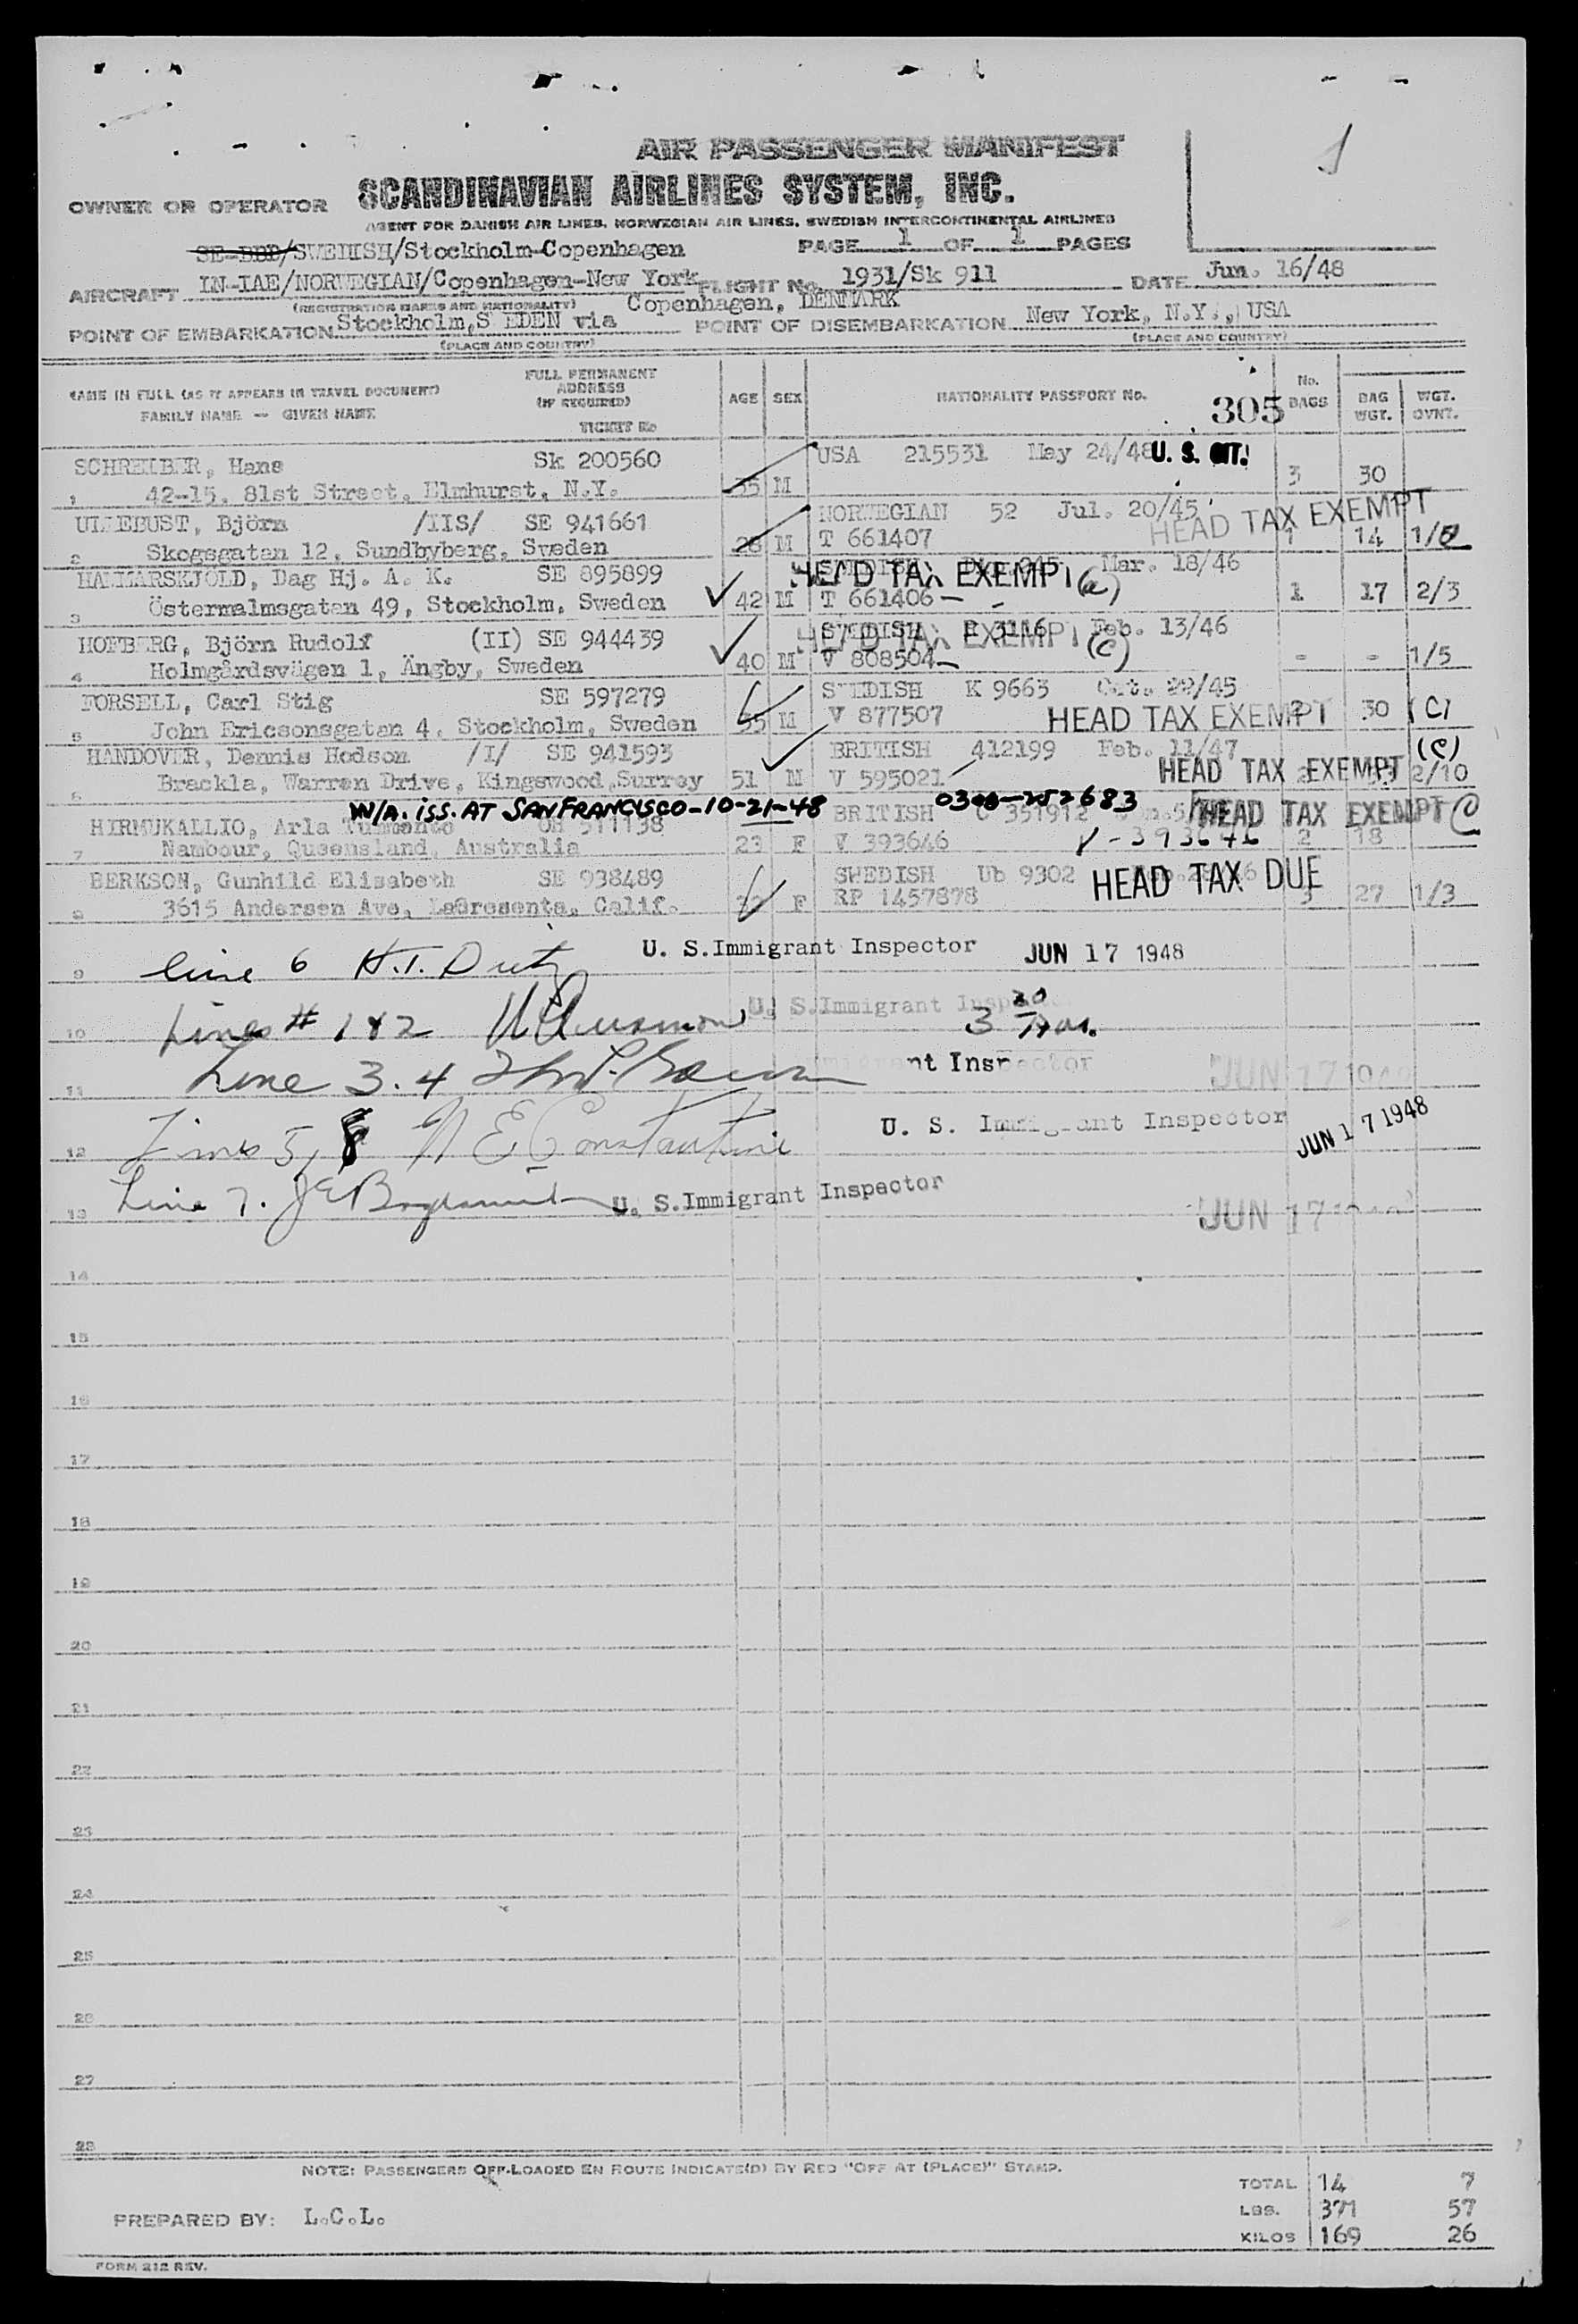 AIR PASSENGER MANIFEST
OWNER OR OPERATOR SCANDINAVIAN AIRLINES SYSTEM, INC.
AGENT FOR DANISH AIR LINES, NORWEGIAN AIR LINES, SWEDISH INTERCONTINENTAL AIRLINES
SE-BBD/SWEDISH/Stockholm-Copenhagen PAGE 1 OF 1 PAGES
AIRCRAFT LN-IAE/NORWEGIAN/Copenhagen-New York FLIGHT No. 1931/Sk 911 DATE Jun. 16/48
(REGISTRATION MARKS AND NATIONALITY) Copenhagen, DENMARK
POINT OF EMBARKATION Stockholm, SWEDEN via POINT OF DISEMBARKATION New York, N.Y., USA
(PLACE AND COUNTRY) (PLACE AND COUNTRY)
NAME IN FULL (AS IT APPEARS IN TRAVEL DOCUMENT) FULL PERMANENT ADDRESS (IF REQUIRED) AGE SEX NATIONALITY PASSPORT No. 305 No. BAGS BAG WGT. WGT. OVNT.
FAMILY NAME — GIVEN NAME TICKET No
SCHREIBER, Hans Sk 200560 USA 215531 May 24/48 U. S. CIT.
1 42-15, 81st Street, Elmhurst, N.Y. 35 M 3 30
ULTEBUST, Björn /IIS/ SE 941661 NORWEGIAN 52 Jul. 20/45 HEAD TAX EXEMPT
2 Skogsgatan 12, Sundbyberg, Sweden 28 M T 661407 1 14
HAMMARSKJOLD, Dag Hj. A. K. SE 895899 SWEDISH Mar. 18/46
HEAD TAX EXEMPT
3 Östermalmsgatan 49, Stockholm, Sweden 42 M T 661406 1 17 2/3
HOFBERG, Björn Rudolf (II) SE 944439 SWEDISH R 3116 Feb. 13/46
HEAD TAX EXEMPT (C)
4 Holmgårdsvägen 1, Ängby, Sweden 40 M V 808504 - - 1/5
FORSELL, Carl Stig SE 597279 SWEDISH K 9663 Oct. 29/45
5 John Ericsonsgatan 4, Stockholm, Sweden 35 M V 877507 HEAD TAX EXEMPT 30 (C)
HANDOVER, Dennis Hodson /I/ SE 941593 BRITISH 412199 Feb. 11/47 (C)
6 Brackla, Warren Drive, Kingswood, Surrey 51 M V 595021 HEAD TAX EXEMPT 2/10
W/A. ISS. AT SAN FRANCISCO-10-21-48 0300-252683
HIRMUKALLIO, Arla 511138 BRITISH C 351912 HEAD TAX EXEMPT C
7 Nambour, Queensland, Australia 23 F V 393646 V-393646 2 18
BERKSON, Gunhild Elisabeth SE 938489 SWEDISH Ub 9302 HEAD TAX DUE
8 3615 Andersen Ave, LaCresenta, Calif. F RP 1457878 3 27 1/3
U. S. Immigrant Inspector JUN 17 1948
9 Line 6
U. S. Immigrant Inspector
10 Lines # 1 & 2
Line 3. 4 Immigrant Inspector JUN 17 1948
11
12 Lines 5, 8 N E Constantine U. S. Immigrant Inspector JUN 17 1948
13 Line 7. U. S. Immigrant Inspector JUN 17 1948
14
15
16
17
18
19
20
21
22
23
24
25
26
27
28
NOTE: PASSENGERS OFF-LOADED EN ROUTE INDICATE(D) BY RED "OFF AT (PLACE)" STAMP.
TOTAL 14 7
PREPARED BY: L.C.L. LBS. 371 57
KILOS 169 26
FORM 212 REV.